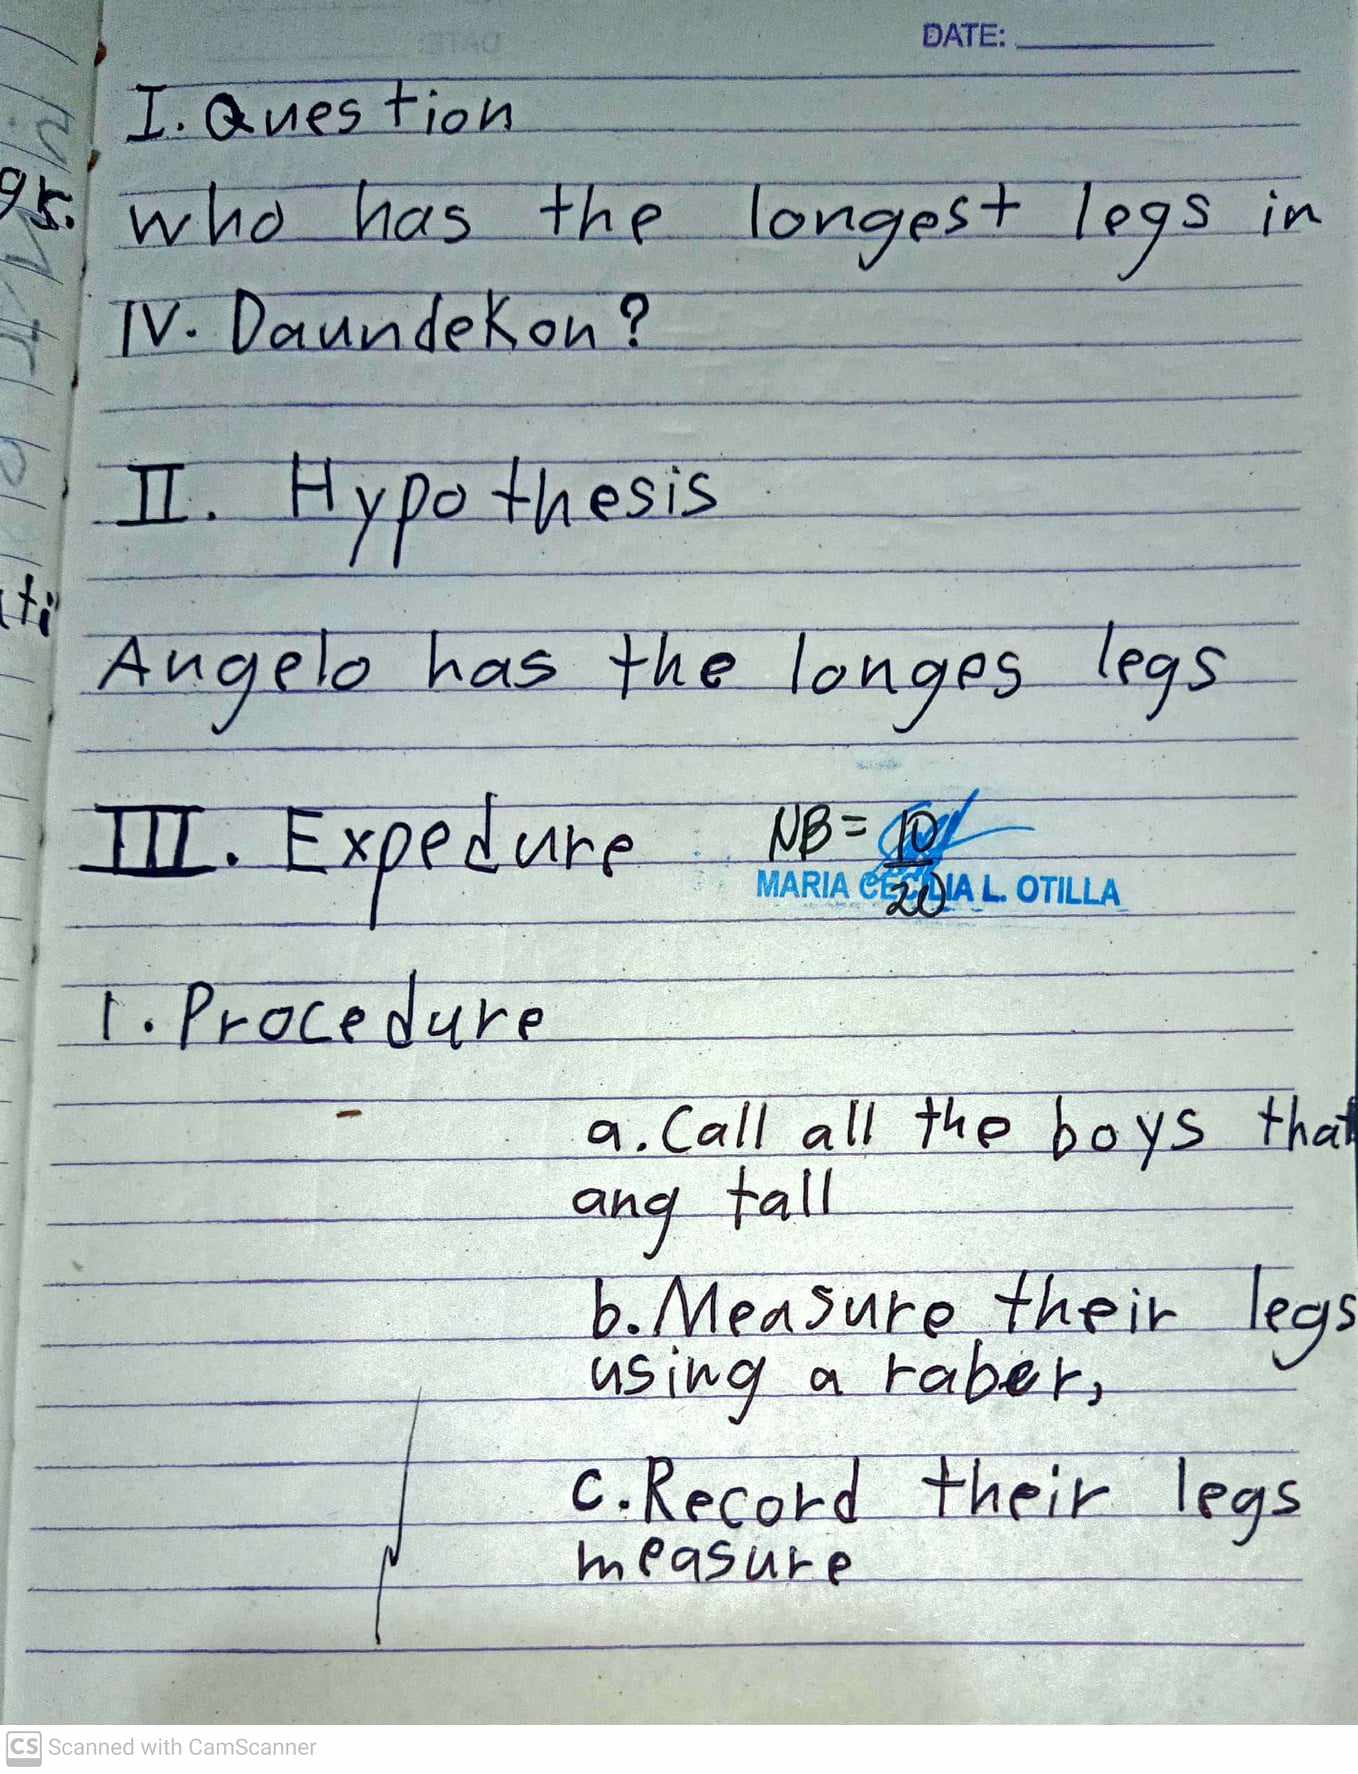 DATE:
I. Question
who has the longest legs in
IV. Daundekon?
II. Hypothesis
Angelo has the longes legs
III. Expedure
NB = 10
MARIA CECILIA L. OTILLA
20
1. Procedure
a. Call all the boys that
ang tall
b. Measure their legs
using a raber,
c. Record their legs
measure
CS Scanned with CamScanner